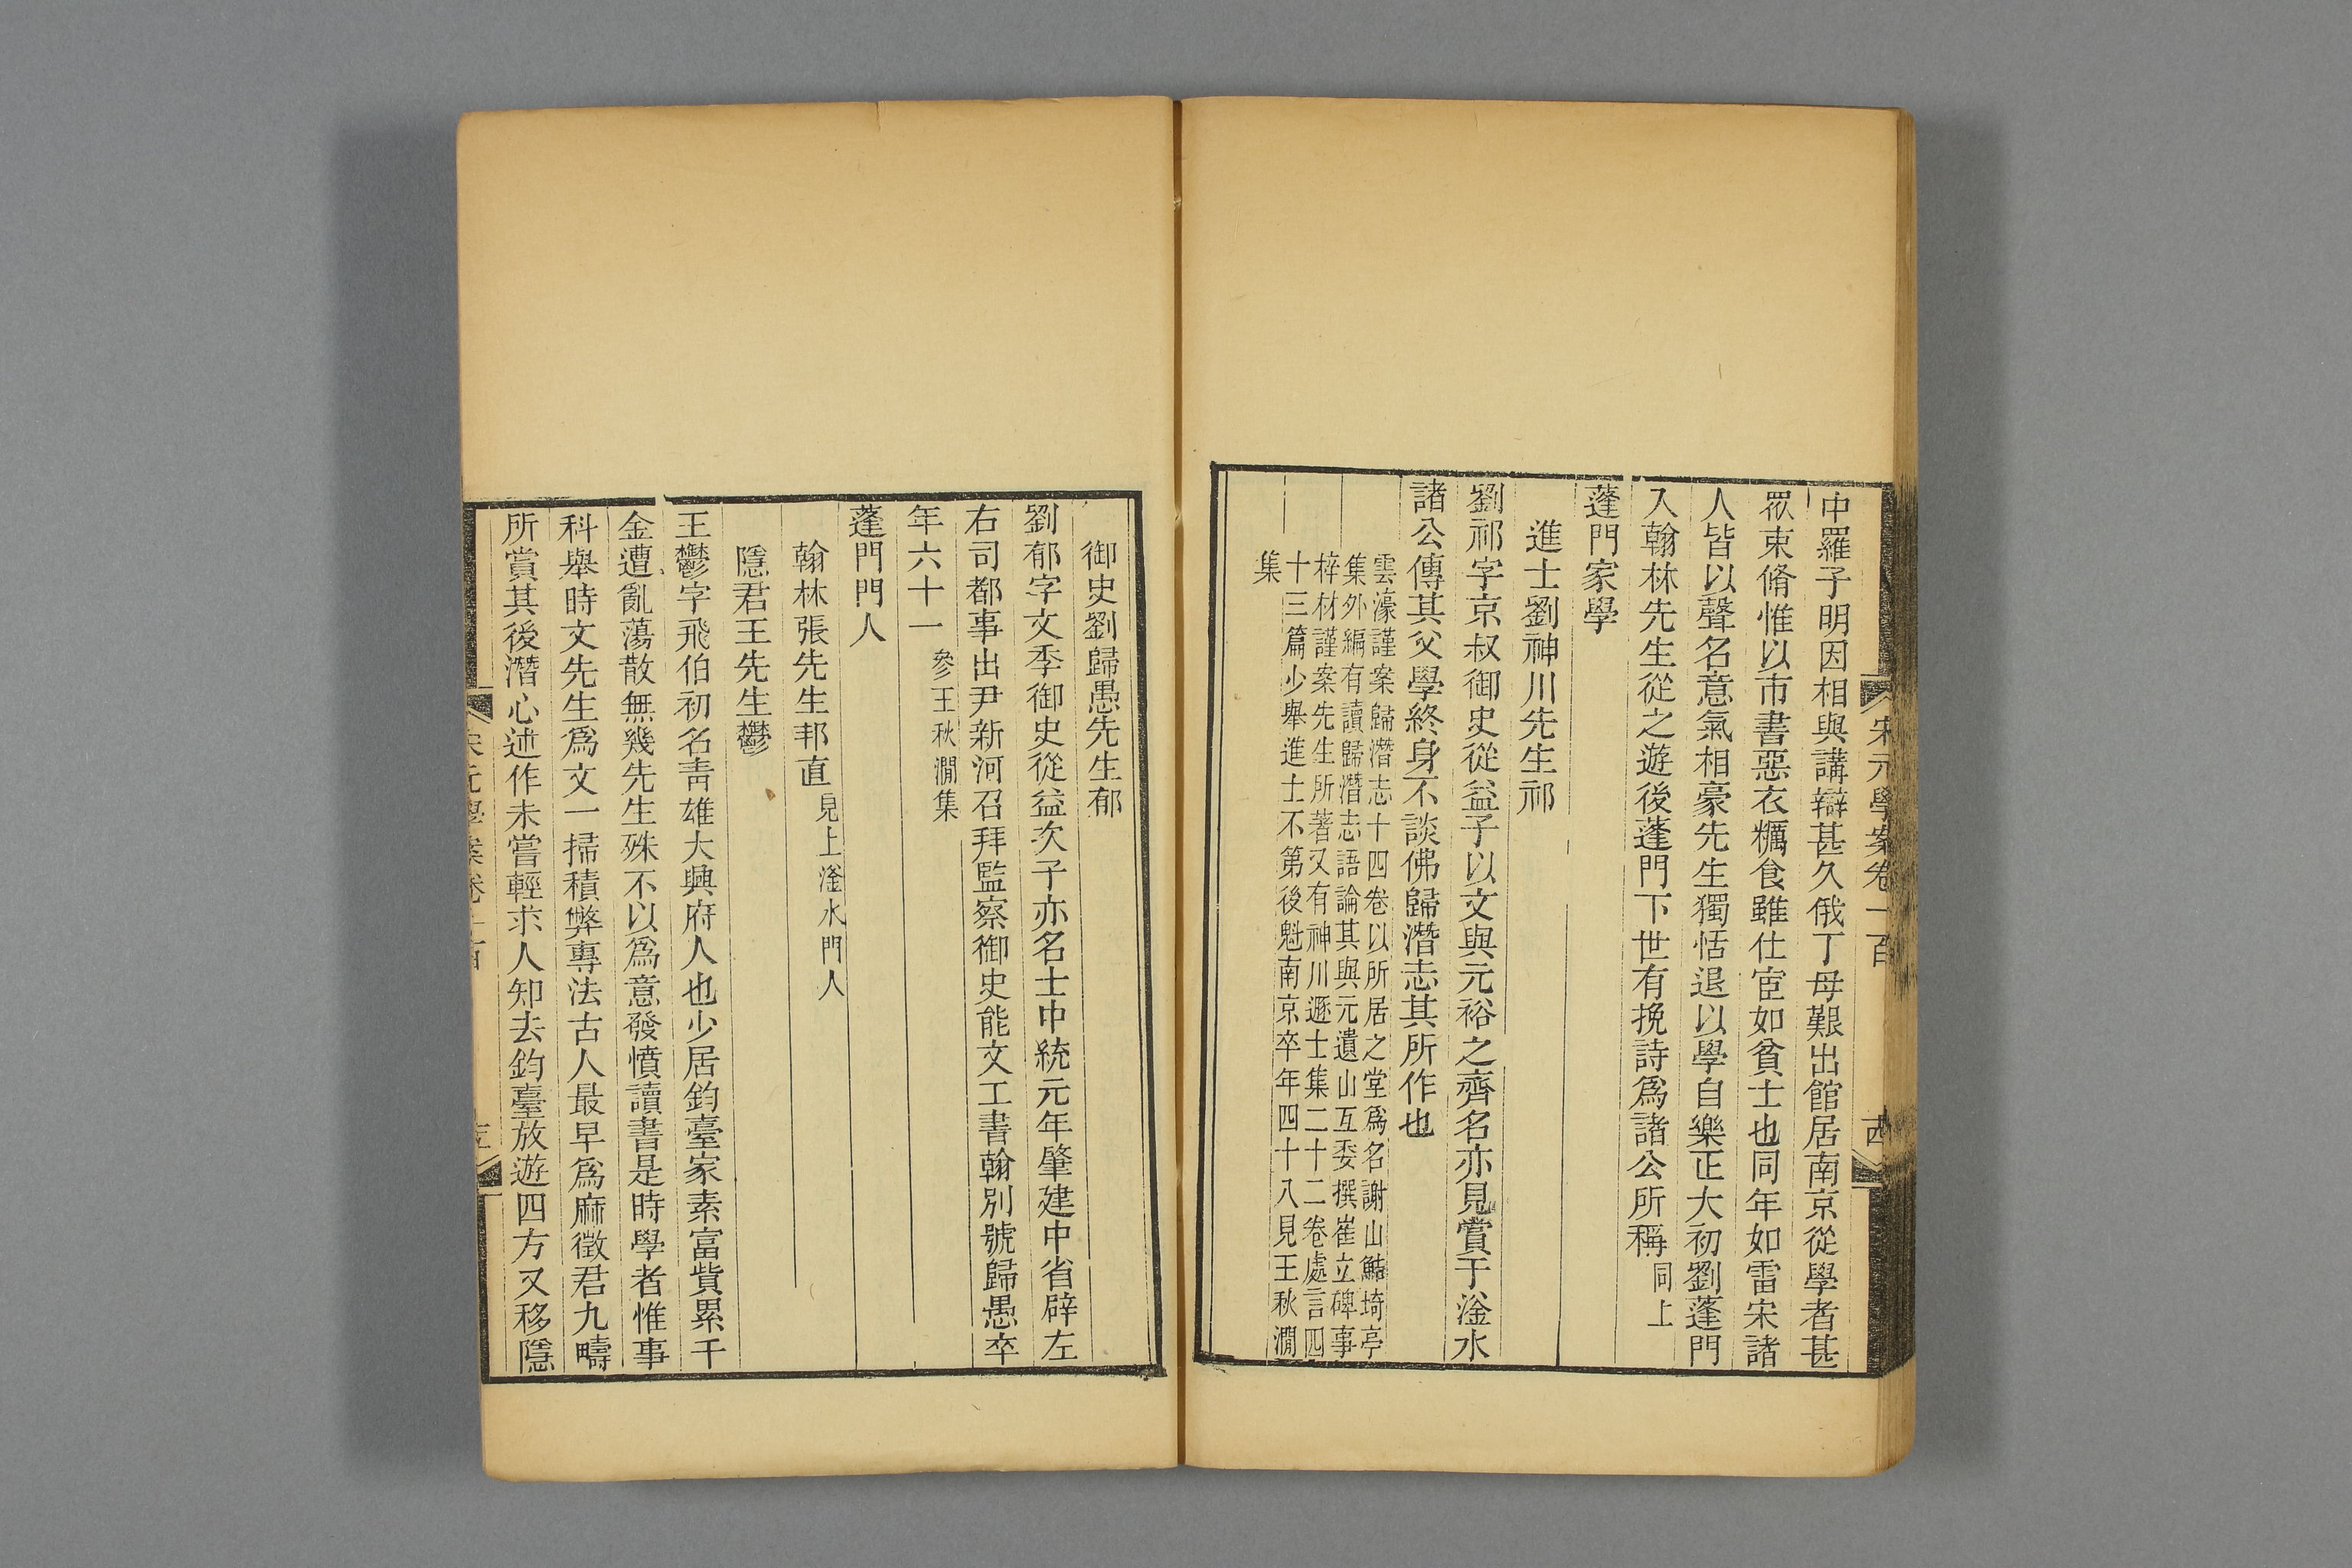 宋元學案卷一百
中羅子明因相與講辯甚久俄丁母艱出館居南京從學者甚
眾束脩惟以市書惡衣糲食雖仕宦如貧士也同年如雷宋諸
人皆以聲名意氣相豪先生獨恬退以學自樂正大初劉蓬門
入翰林先生從之遊後蓬門下世有挽詩爲諸公所稱同上
蓬門家學
進士劉神川先生祁
劉祁字京叔御史從益子以文與元裕之齊名亦見賞于滏水
諸公傳其父學終身不談佛歸潛志其所作也
雲濠謹案歸潛志十四卷以所居之堂爲名謝山鮚埼亭
集外編有讀歸潛志語論其與元遺山互委撰崔立碑事
梓材謹案先生所著又有神川遯士集二十二卷處言四
十三篇少舉進士不第後魁南京卒年四十八見王秋澗
集
御史劉歸愚先生郁
劉郁字文季御史從益次子亦名士中統元年肇建中省辟左
右司都事出尹新河召拜監察御史能文工書翰別號歸愚卒
年六十一參王秋澗集
蓬門門人
翰林張先生邦直見上滏水門人
隱君王先生鬱
王鬱字飛伯初名青雄大興府人也少居鈞臺家素富貲累千
金遭亂蕩散無幾先生殊不以爲意發憤讀書是時學者惟事
科舉時文先生爲文一掃積弊專法古人最早爲麻徵君九疇
所賞其後潛心述作未嘗輕求人知去鈞臺放遊四方又移隱
宋元學案卷一百